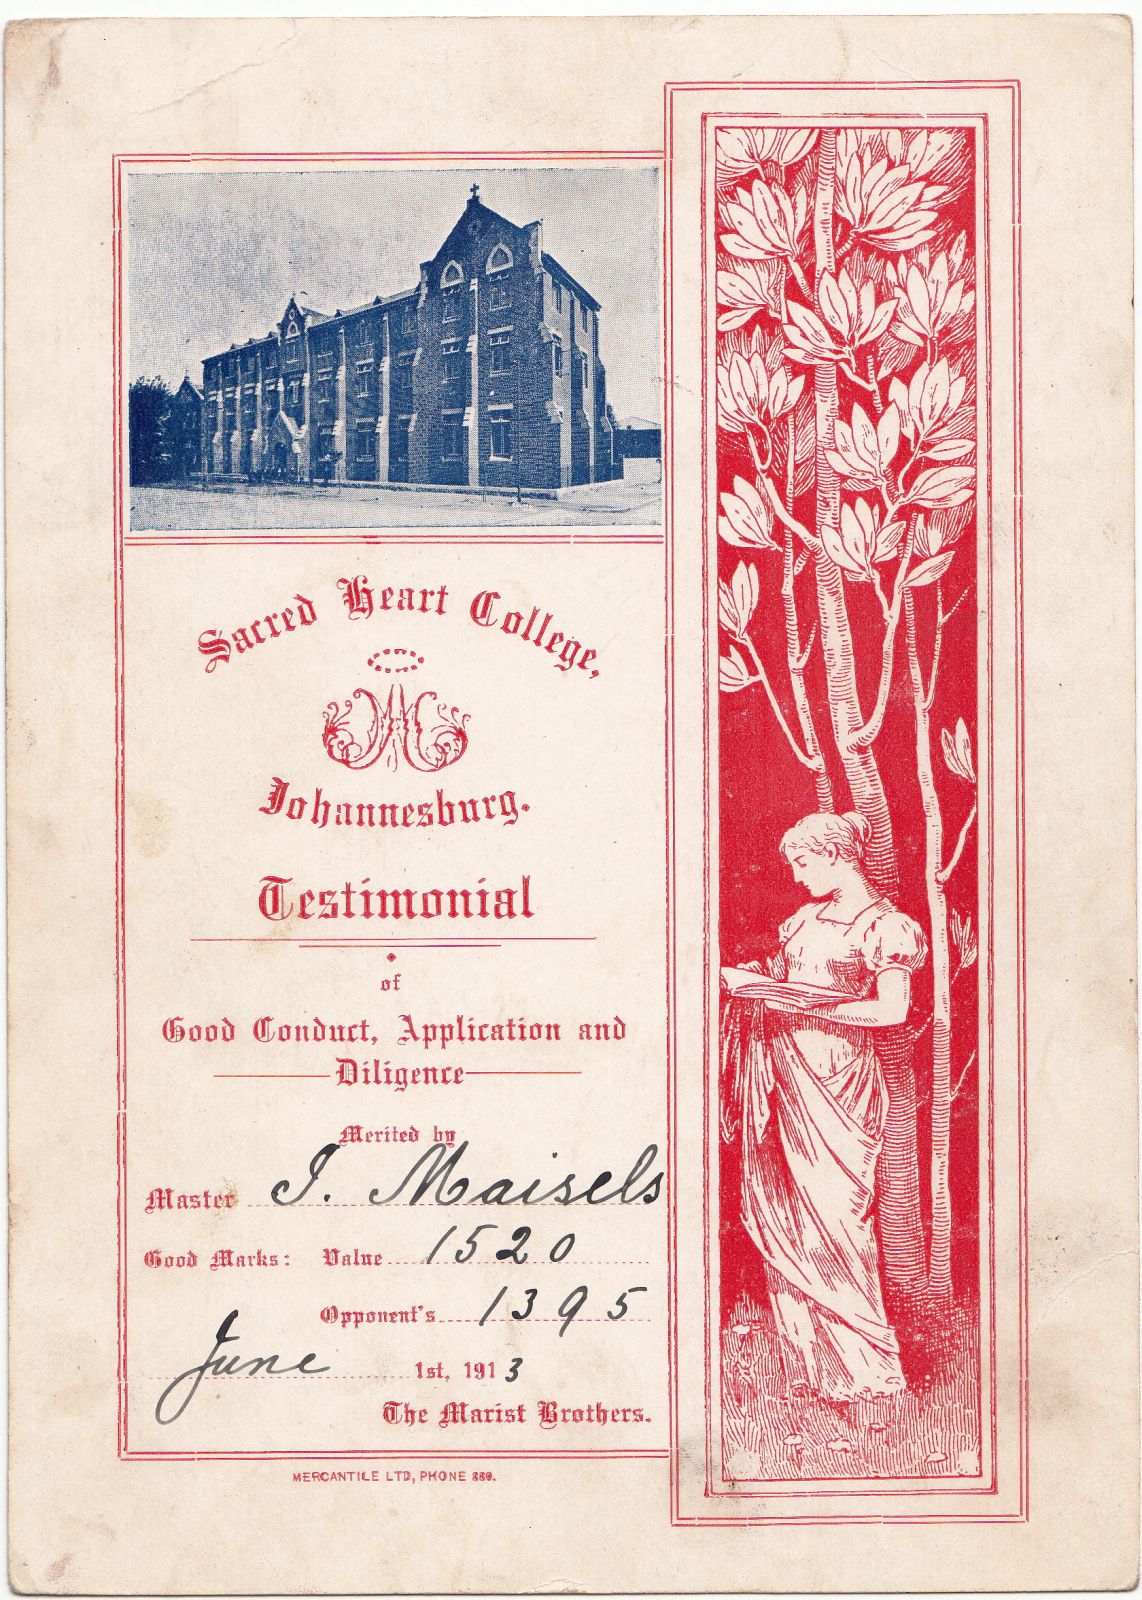 Sacred Heart College,
Johannesburg.
Testimonial
of
Good Conduct, Application and
Diligence
Merited by
Master I. Maisels
Good Marks: Value 1520
Opponent's 1395
June 1st, 1913
The Marist Brothers.
MERCANTILE LTD, PHONE